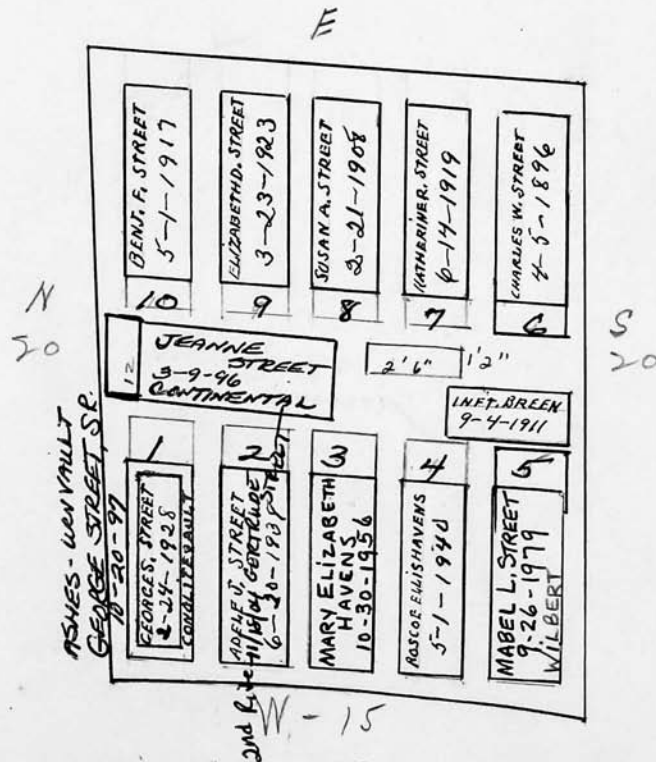 E
BENJ. F. STREET
5-1-1917
ELIZABETH D. STREET
3-23-1923
SUSAN A. STREET
2-21-1908
KATHERINE R. STREET
6-14-1919
CHARLES W. STREET
4-5-1896
10
9
8
7
6
N
20
S
20
12
JEANNE
STREET
3-9-96
CONTINENTAL
2'6"
1'2"
INFT. BREEN
9-4-1911
ASHES-URN VAULT
GEORGE STREET, SR.
10-20-97
1
2
3
4
5
GEORGE S. STREET
2-24-1928
CONOLITE VAULT
ADELE J. STREET
6-20-193
2nd Rite
GERTRUDE
STREET
MARY ELIZABETH
HAVENS
10-30-1956
ROSCOE ELLIS HAVENS
5-1-1940
MABEL L. STREET
9-26-1979
WILBERT
W-15